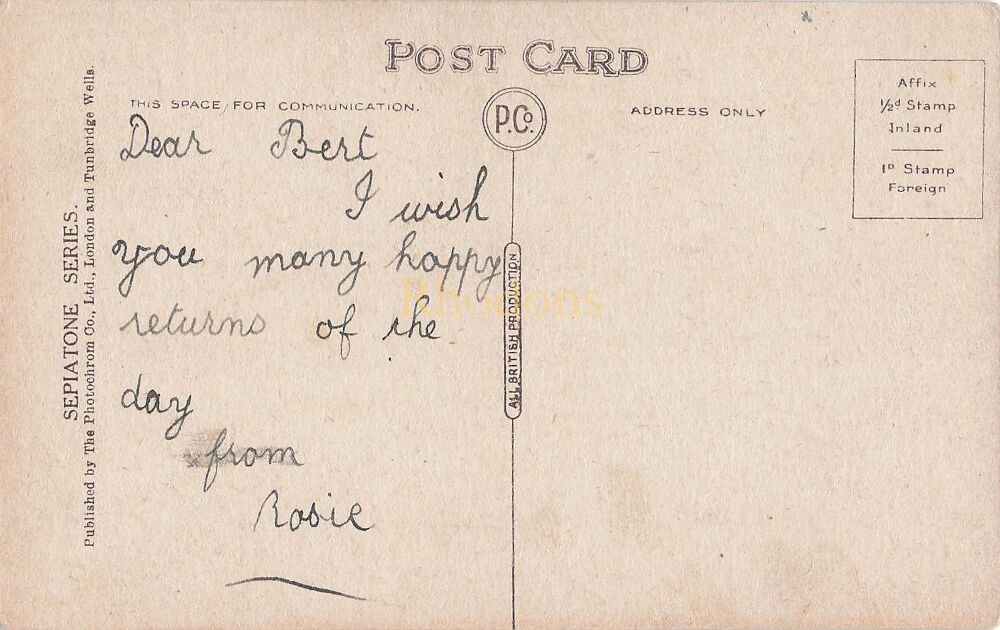 POST CARD
THIS SPACE FOR COMMUNICATION.
ADDRESS ONLY
P.Co.
Affix
½d Stamp
Inland
1D Stamp
Foreign
Dear Bert
I wish
you many happy
returns of the
day
from
Rosie
SEPIATONE SERIES.
Published by The Photochrom Co., Ltd., London and Tunbridge Wells.
ALL BRITISH PRODUCTION